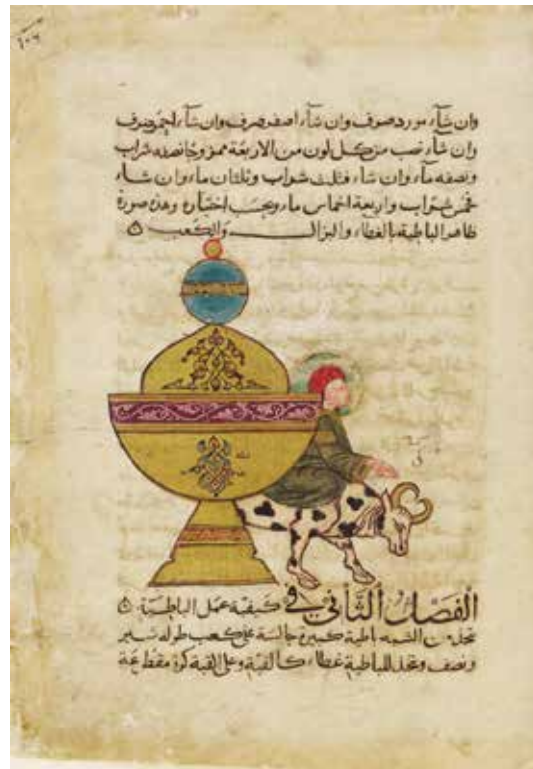 وان شاء مورد صرف وان شاء اصفر صرف وان شاء احمر صرف
وان شاء نصب من كل لون من الاربعة ممزوجا نصفه شراب
ونصفه ماء وان شاء فثلث شراب وثلثان ماء وان شاء
فخمس شراب واربعة اخماس ماء وبحسب اختياره وهذه صورة
ظاهر الباطية بالغطاء والبزال والكعب
الفصل الثاني في كيفية عمل الباطية
تتخذ من الشبه باطية كبيرة جالسة على كعب طوله شبر
ونصف وتتخذ للباطية غطاء كالقبة وعلى القبة كرة مقطعة